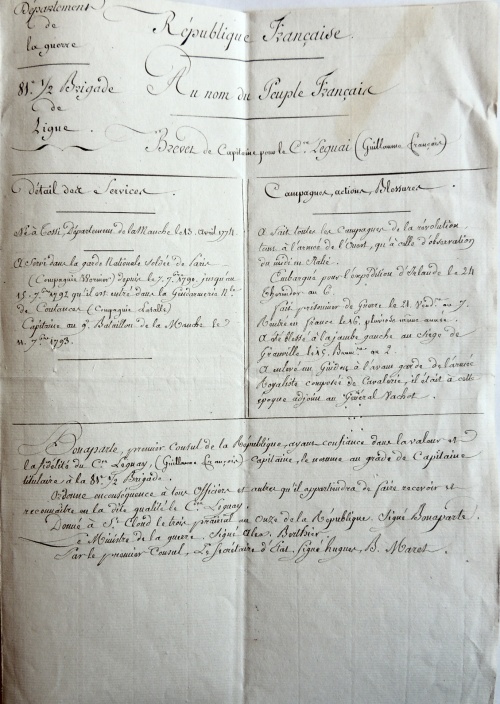 Département
de
la guerre
République Française.
Au nom du Peuple Français
81e 1/2 Brigade
de
Ligne.
Brevet de Capitaine pour le Cen Leguai (Guillaume François)
Détail des Services.
Né à Cossé, Département de la Manche le 13 avril 1774.
A Servi dans la garde Nationale soldée de Paris
(Compagnie Wormier) depuis le 7. 7bre 1790, jusqu'au
15. 7bre 1792 qu'il est entré dans la Gendarmerie Nle
de Coutances (Compagnie Lataille)
Capitaine au 9e Bataillon de la Manche le
11. 7bre 1793.
Campagnes, actions, Blessures.
A fait toutes les Campagnes de la révolution
tant à l'armée de l'Ouest, qu'à celle d'observation
du midi en Italie.
Embarqué pour l'expédition d'Irlande le 24
Thermidor an 6.
fait prisonnier de Guerre le 21 Vendre an 7.
Rentré en france le 16 pluviose même année.
A été blessé à la jambe gauche au Siège de
Granville le 25 Brumre an 2.
A enlevé un Guidon à l'avant garde de l'armée
Royaliste composée de Cavalerie, il était à cette
époque adjoint au Général Vachot.
Bonaparte, premier Consul de la République, ayant confiance dans la valeur et
la fidélité du Cen Leguay, (Guillaume François) Capitaine, le nomme au grade de Capitaine
titulaire à la 81e 1/2 Brigade.
Ordonne en conséquence à tous Officiers et autres qu'il appartiendra de faire recevoir et
reconnaître en la dite qualité le Cen Leguay.
Donné à St Cloud le trois prairial an Onze de la République. Signé Bonaparte.
Le Ministre de la guerre. Signé Alex. Berthier
Par le premier Consul, Le Secrétaire d'Etat, Signé hugues, B. Maret.